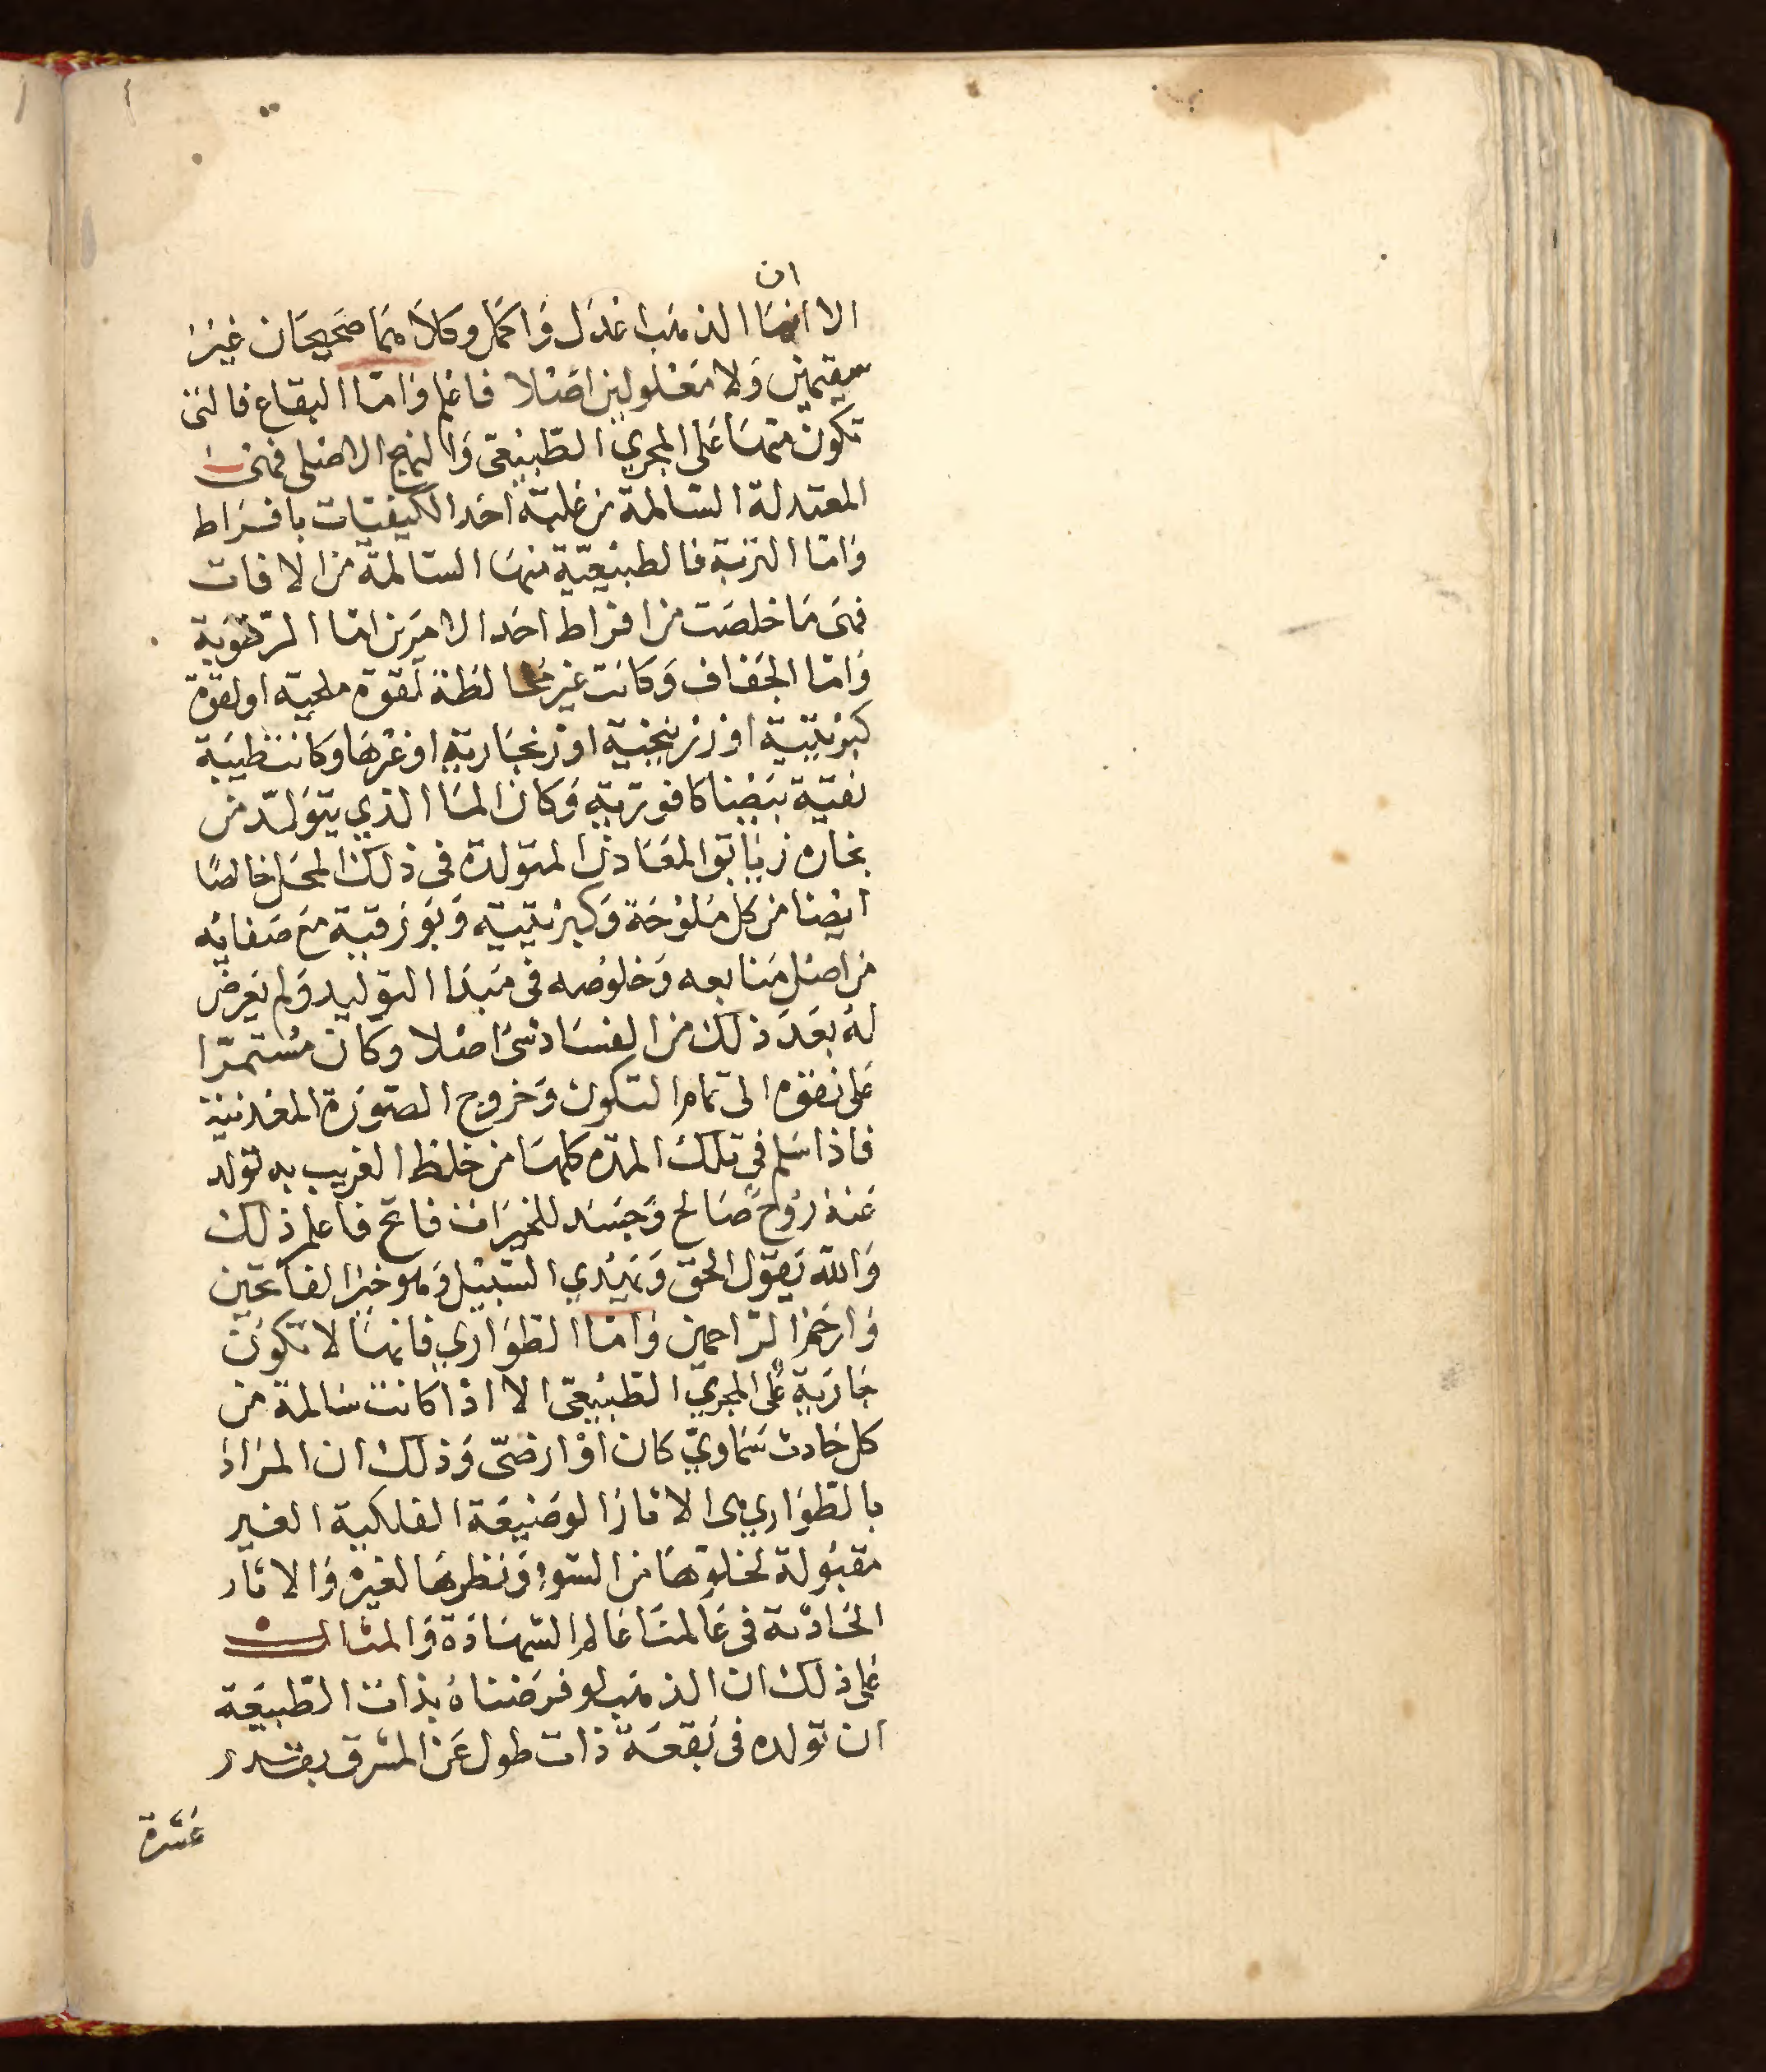 ان
الا انما الذهب اعدل واكمل وكلاهما صحيحان غير
سقيمين ولا معلولين اصلا فاعلم واما البقاع فالتى
تكون منها على المجري الطبيعى والنهج الاصلى فهى
المعتدلة السالمة من غلبة احد الكيفيات بافراط
واما التربة فالطبيعية منها السالمة من الافات
فهى ما خلصت من افراط احد الامرين اما الرطوبة
واما الجفاف وكانت غير مخالطة لقوة ملحية او لقوة
كبريتية او زرنيخية او زنجارية او غرها وكانت طيبة
نقية بيضا كافورية وكان الما الذي يتولد من
بخاره زيابق المعادن المتولدة فى ذلك المحل خالصا
ايضا من كل ملوحة وكبريتية وبورقية مع صفايه
من اصل منابعه وخلوصه فى مبدا التوليد ولم يعرض
له بعد ذلك من الفساد شئ اصلا وكان مستمرا
على نضقه الى تمام التكون وخروج الصورة المعدنية
فاذا سلم في تلك المده كلها من خلط الغريب به تولد
عنه روح صالح وجسد للخيرات فاتح فاعلم ذلك
والله يقول الحق ويهدي السبيل وهو خير الفاتحين
وارحم الراحمين واما الطواري فانها لا تكون
جارية على المجري الطبيعى الا اذا كانت سالمة من
كل حادث سماوي كان او ارضى وذلك ان المراد
بالطواري هى الاثار الوضيعة الفلكية الغير
مقبولة لخلوها من السوء ونظرها لغيره والاثار
الحادثة فى عالمنا عالم الشهادة والمثال
على ذلك ان الذهب لو فرضناه بذات الطبيعة
ان تولده فى بقعة ذات طول عن المشرق بقدر
عشرة